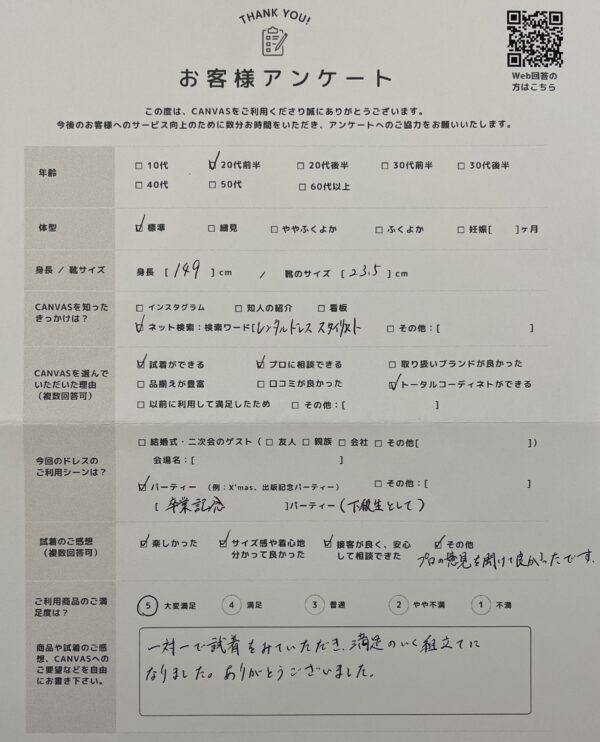 THANK YOU!
お客様アンケート
Web回答の
方はこちら
この度は、CANVASをご利用くださり誠にありがとうございます。
今後のお客様へのサービス向上のために数分お時間をいただき、アンケートへのご協力をお願いいたします。
年齢 □ 10代 ☑ 20代前半 □ 20代後半 □ 30代前半 □ 30代後半
□ 40代 □ 50代 □ 60代以上
体型 ☑ 標準 □ 細見 □ ややふくよか □ ふくよか □ 妊娠[ ]ヶ月
身長 / 靴サイズ 身長 [ 149 ] cm / 靴のサイズ [ 23.5 ] cm
CANVASを知った
きっかけは?
□ インスタグラム □ 知人の紹介 □ 看板
☑ ネット検索:検索ワード[レンタルドレス スタイリスト □ その他:[ ]
CANVASを選んで
いただいた理由
(複数回答可)
☑ 試着ができる ☑ プロに相談できる □ 取り扱いブランドが良かった
□ 品揃えが豊富 □ 口コミが良かった ☑ トータルコーディネトができる
□ 以前に利用して満足したため □ その他:[ ]
今回のドレスの
ご利用シーンは?
□ 結婚式・二次会のゲスト ( □ 友人 □ 親族 □ 会社 □ その他[ ])
会場名:[ ]
☑ パーティー (例:X'mas、出版記念パーティー) □ その他:[ ]
[ 卒業記念 ]パーティー (下級生として)
試着のご感想
(複数回答可)
☑ 楽しかった ☑ サイズ感や着心地
分かって良かった
☑ 接客が良く、安心
して相談できた
☑ その他
プロの意見を聞けて良かったです。
ご利用商品のご満
足度は?
⑤ 大変満足 ④ 満足 ③ 普通 ② やや不満 ① 不満
商品や試着のご感
想、CANVASへの
ご要望などを自由
にお書き下さい。
一対一で試着をみていただき、満足のいく組立てに
なりました。ありがとうございました。